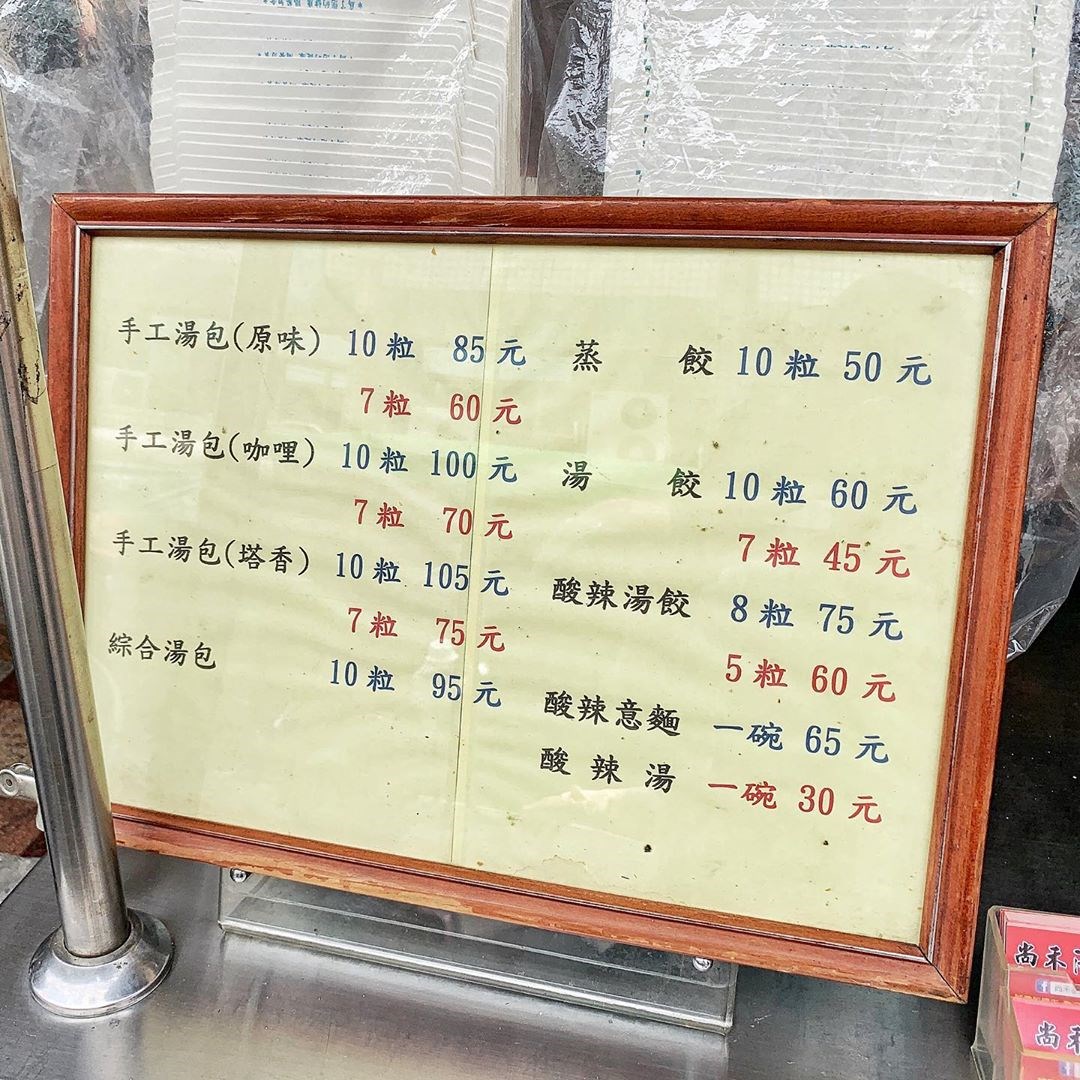 手工湯包(原味) 10粒 85元
7粒 60元
手工湯包(咖哩) 10粒 100元
7粒 70元
手工湯包(塔香) 10粒 105元
7粒 75元
綜合湯包 10粒 95元
蒸餃 10粒 50元
湯餃 10粒 60元
7粒 45元
酸辣湯餃 8粒 75元
5粒 60元
酸辣意麵 一碗 65元
酸辣湯 一碗 30元
尚禾
尚